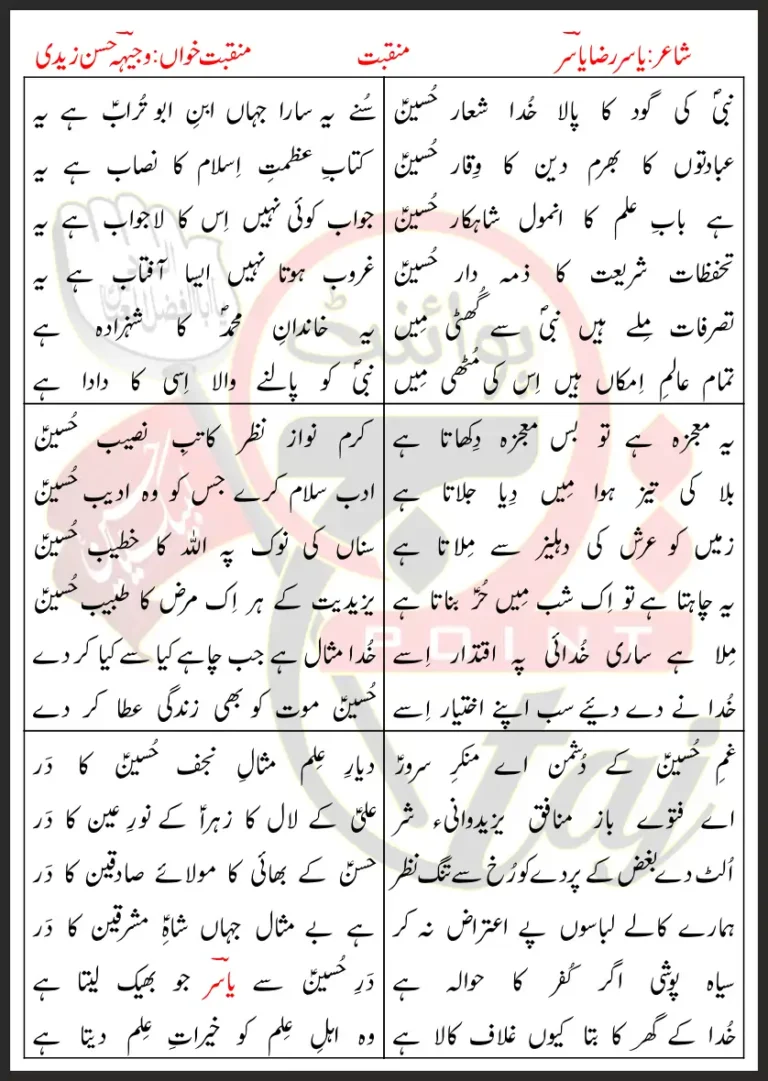 شاعر: یاسر رضا یاسرؔ
منقبت
منقبت خواں: وجیہہ حسن زیدی
نبیؐ کی گود کا پالا خُدا شعار حُسینؑ
عبادتوں کا بھرم دین کا وِقار حُسینؑ
ہے بابِ علم کا انمول شاہکار حُسینؑ
تحفظات شریعت کا ذمہ دار حُسینؑ
تصرفات مِلے ہیں نبیؐ سے گُھٹی مِیں
تمام عالمِ اِمکاں ہیں اِس کی مُٹھی مِیں
سُنے یہ سارا جہاں ابنِ ابو تُرابؑ ہے یہ
کتابِ عظمتِ اِسلام کا نصاب ہے یہ
جواب کوئی نہیں اِس کا لاجواب ہے یہ
غروب ہوتا نہیں ایسا آفتاب ہے یہ
یہ خاندانِ محمدؐ کا شہزادہ ہے
نبیؐ کو پالنے والا اِسی کا دادا ہے
یہ معجزہ ہے تو بس معجزہ دِکھاتا ہے
بلا کی تیز ہوا مِیں دِیا جلاتا ہے
زمیں کو عرش کی دہلیز سے مِلاتا ہے
یہ چاہتا ہے تو اِک شب مِیں حُرؑ بناتا ہے
مِلا ہے ساری خُدائی پہ اقتدار اِسے
خُدا نے دے دئیے سب اپنے اختیار اِسے
کرم نواز نظر کاتبِ نصیب حُسینؑ
ادب سلام کرے جس کو وہ ادیب حُسینؑ
سناں کی نوک پہ اللہ کا خطیب حُسینؑ
یزیدیت کے ہر اِک مرض کا طبیب حُسینؑ
خُدا مثال ہے جب چاہے کیا سے کیا کر دے
حُسینؑ موت کو بھی زندگی عطا کر دے
غمِ حُسینؑ کے دُشمن اے منکرِ سرورؑ
اے فتوے باز منافق یزیدوانیء شر
اُلٹ دے بغض کے پردے کو رُخ سے تنگ نظر
ہمارے کالے لباسوں پے اعتراض نہ کر
سیاہ پوشی اگر کُفر کا حوالہ ہے
خُدا کے گھر کا بتا کیوں غلاف کالا ہے
دیارِ عِلم مثالِ نجف حُسینؑ کا دَر
علیؑ کے لال کا زہراؑ کے نورِ عین کا دَر
حسنؑ کے بھائی کا مولائے صادقین کا دَر
ہے بے مثال جہاں شاہِؑ مشرقین کا دَر
دَرِ حُسینؑ سے یاسرؔ جو بھیک لیتا ہے
وہ اہلِ عِلم کو خیراتِ عِلم دیتا ہے
پوائنٹ
POINT
taj